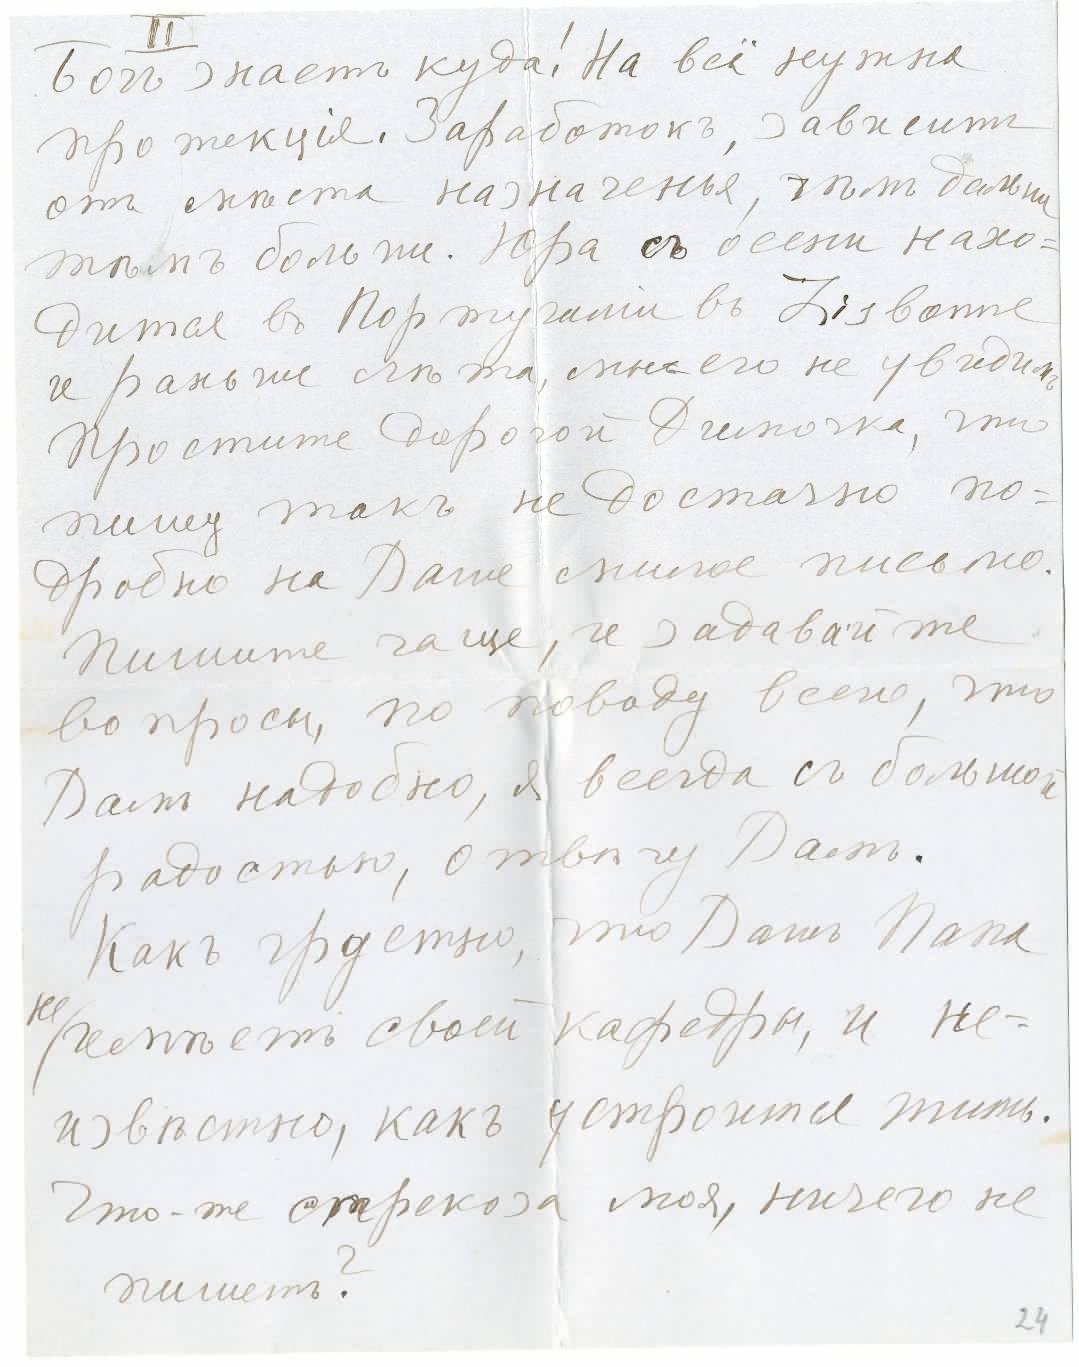 II
Богъ знаетъ куда! На всё нужна
протекція. Заработокъ, зависитъ
отъ мѣста назначенья, чѣмъ дальше
тѣмъ больше. Юра съ осени нахо=
дится въ Португаліи въ Lisbonne
и раньше лѣта, мы его не увидимъ
Простите дорогой Димочка, что
пишу такъ не достачно по=
дробно на Ваше милое письмо.
Пишите чаще, и задавайте
вопросы, по поводу всего, что
Вамъ надобно, я всегда съ большой
радостью, отвѣчу Вамъ.
Какъ грустно, что Вашъ Папа
не/имѣетъ своей кафедры, и не=
извѣстно, какъ устроится жить.
Что-же стрекоза моя, ничего не
пишетъ?
24